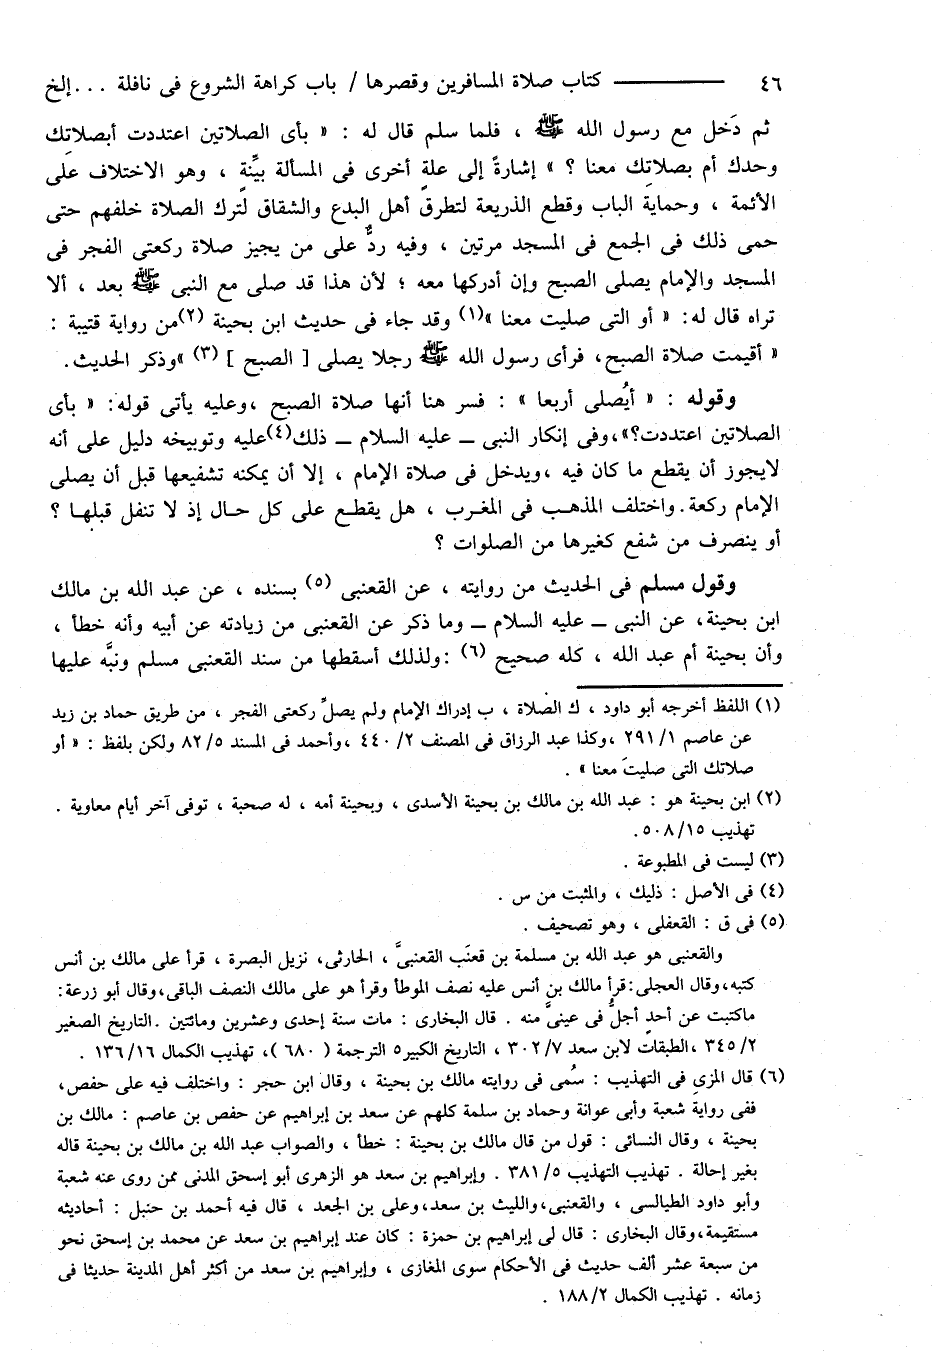 ٤٦ ــــــــــ كتاب صلاة المسافرين وقصرها / باب كراهة الشروع فى نافلة ... إلخ
ثم دَخل مع رسول الله ﷺ ، فلما سلم قال له : « بأى الصلاتين اعتددت أبصلاتك
وحدك أم بصلاتِك معنا ؟ » إشارةً إلى علةٍ أخرى فى المسألة بيِّنةٍ ، وهو الاختلاف على
الأئمة ، وحماية الباب وقطع الذريعة لتطرق أهل البدع والشقاق لترك الصلاة خلفهم حتى
حمى ذلك فى الجمع فى المسجد مرتين ، وفيه ردٌّ على من يجيز صلاة ركعتى الفجر فى
المسجد والإمام يصلى الصبح وإن أدركها معه ؛ لأن هذا قد صلى مع النبى ﷺ بعد ، ألا
تراه قال له: « أو التى صليت معنا »(١) وقد جاء فى حديث ابن بحينة (٢)من رواية قتيبة :
« أقيمت صلاة الصبح، فرأى رسول الله ﷺ رجلا يصلى [ الصبح ] (٣) »وذكر الحديث.
وقوله : « أيُصلى أربعا » : فسر هنا أنها صلاة الصبح ،وعليه يأتى قوله: « بأى
الصلاتين اعتددت؟»،وفى إنكار النبى ــ عليه السلام ــ ذلك(٤)عليه وتوبيخه دليل على أنه
لايجوز أن يقطع ما كان فيه ،ويدخل فى صلاة الإمام ، إلا أن يمكنه تشفيعها قبل أن يصلى
الإمام ركعة. واختلف المذهب فى المغرب ، هل يقطع على كل حال إذ لا تنفل قبلها ؟
أو ينصرف من شفع كغيرها من الصلوات ؟
وقول مسلم فى الحديث من روايته ، عن القعنبى (٥) بسنده ، عن عبد الله بن مالك
ابن بحينة، عن النبى ــ عليه السلام ــ وما ذكر عن القعنبى من زيادته عن أبيه وأنه خطأ ،
وأن بحينة أم عبد الله ، كله صحيح (٦) :ولذلك أسقطها من سند القعنبى مسلم ونبَّه عليها
(١) اللفظ أخرجه أبو داود ، ك الصلاة ، ب إدراك الإمام ولم يصلِّ ركعتى الفجر ، من طريق حماد بن زيد
عن عاصم ٢٩١/١ ،وكذا عبد الرزاق فى المصنف ٤٤٠/٢ ،وأحمد فى المسند ٨٢/٥ ولكن بلفظ : « أو
صلاتك التى صليتَ معنا » .
(٢) ابن بحينة هو : عبد الله بن مالك بن بحينة الأسدى ، وبحينة أمه ، له صحبة ، توفى آخر أيام معاوية .
تهذيب ٥٠٨/١٥.
(٣) ليست فى المطبوعة .
(٤) فى الأصل : ذليك ، والمثبت من س .
(٥) فى ق : القعفلى ، وهو تصحيف .
والقعنبى هو عبد الله بن مسلمة بن قعنَب القعنبىَّ ، الحارثى، نزيل البصرة ، قرأ على مالك بن أنس
كتبه،وقال العجلى:قرأ مالك بن أنس عليه نصف الموطأ وقرأ هو على مالك النصف الباقى،وقال أبو زرعة:
ماكتبت عن أحدٍ أجلُّ فى عينىَّ منه . قال البخارى : مات سنة إحدى وعشرين ومائتين .التاريخ الصغير
٣٤٥/٢ ،الطبقات لابن سعد ٣٠٢/٧ ، التاريخ الكبير٥ الترجمة ( ٦٨٠ )، تهذيب الكمال ١٣٦/١٦ .
(٦) قال المزى فى التهذيب : سُمى فى روايته مالك بن بحينة ، وقال ابن حجر : واختلف فيه على حفص،
ففى رواية شعبة وأبى عوانة وحماد بن سلمة كلهم عن سعد بن إبراهيم عن حفص بن عاصم : مالك بن
بحينة ، وقال النسائى : قول من قال مالك بن بحينة : خطأ ، والصواب عبد الله بن مالك بن بحينة قاله
بغير إحالة . تهذيب التهذيب ٣٨١/٥ . وإبراهيم بن سعد هو الزهرى أبو إسحق المدنى ممن روى عنه شعبة
وأبو داود الطيالسى ، والقعنبى،والليث بن سعد،وعلى بن الجعد ، قال فيه أحمد بن حنبل : أحاديثه
مستقيمة،وقال البخارى : قال لى إبراهيم بن حمزة : كان عند إبراهيم بن سعد عن محمد بن إسحق نحو
من سبعة عشر ألف حديث فى الأحكام سوى المغازى ، وإبراهيم بن سعد من أكثر أهل المدينة حديثا فى
زمانه . تهذيب الكمال ١٨٨/٢ .